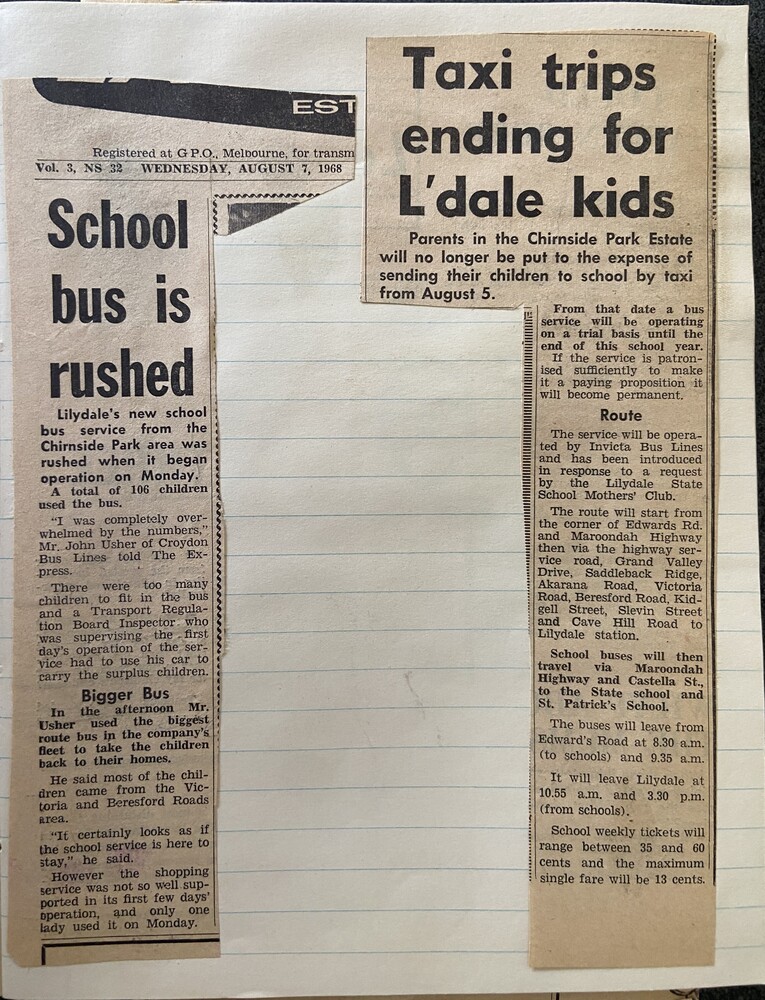 EST
Registered at G.P.O., Melbourne, for transm
Vol. 3, NS 32 WEDNESDAY, AUGUST 7, 1968
School
bus is
rushed
Lilydale's new school
bus service from the
Chirnside Park area was
rushed when it began
operation on Monday.
A total of 106 children
used the bus.
"I was completely over-
whelmed by the numbers,"
Mr. John Usher of Croydon
Bus Lines told The Ex-
press.
There were too many
children to fit in the bus
and a Transport Regula-
tion Board Inspector who
was supervising the first
day's operation of the ser-
vice had to use his car to
carry the surplus children.
Bigger Bus
In the afternoon Mr.
Usher used the biggest
route bus in the company's
fleet to take the children
back to their homes.
He said most of the chil-
dren came from the Vic-
toria and Beresford Roads
area.
"It certainly looks as if
the school service is here to
stay," he said.
However the shopping
service was not so well sup-
ported in its first few days'
operation, and only one
lady used it on Monday.
Taxi trips
ending for
L'dale kids
Parents in the Chirnside Park Estate
will no longer be put to the expense of
sending their children to school by taxi
from August 5.
From that date a bus
service will be operating
on a trial basis until the
end of this school year.
If the service is patron-
ised sufficiently to make
it a paying proposition it
will become permanent.
Route
The service will be opera-
ted by Invicta Bus Lines
and has been introduced
in response to a request
by the Lilydale State
School Mothers' Club.
The route will start from
the corner of Edwards Rd.
and Maroondah Highway
then via the highway ser-
vice road, Grand Valley
Drive, Saddleback Ridge,
Akarana Road, Victoria
Road, Beresford Road, Kid-
gell Street, Slevin Street
and Cave Hill Road to
Lilydale station.
School buses will then
travel via Maroondah
Highway and Castella St.,
to the State school and
St. Patrick's School.
The buses will leave from
Edward's Road at 8.30 a.m.
(to schools) and 9.35 a.m.
It will leave Lilydale at
10.55 a.m. and 3.30 p.m.
(from schools).
School weekly tickets will
range between 35 and 60
cents and the maximum
single fare will be 13 cents.